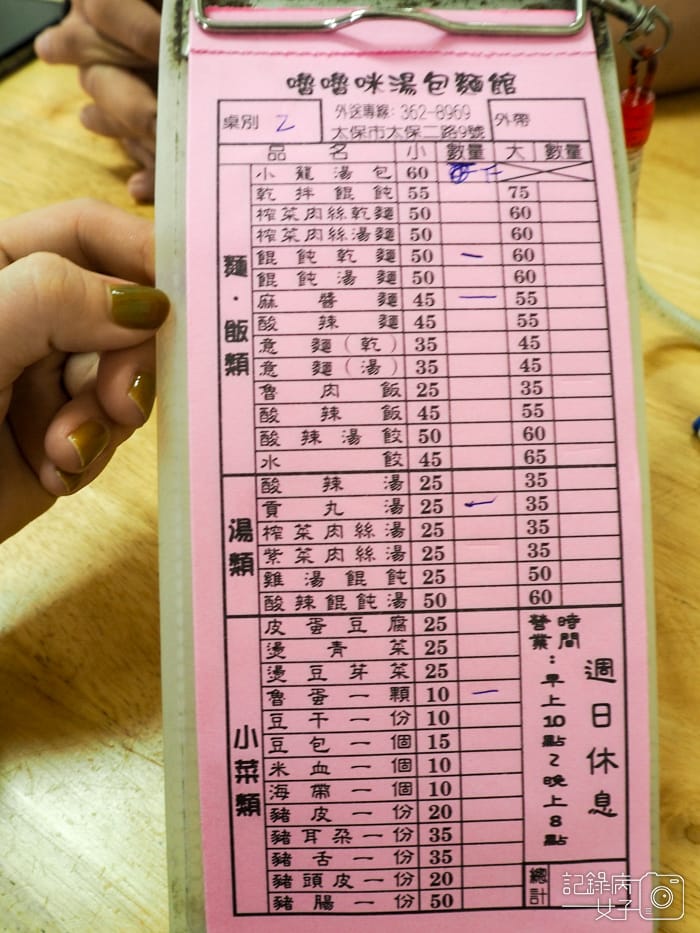 嚕嚕咪湯包麵館
桌別 2 外送專線: 362-8969 外帶
太保市太保二路9號
品名 小 數量 大 數量
麵·飯類
小龍湯包 60
乾拌餛飩 55 75
榨菜肉絲乾麵 50 60
榨菜肉絲湯麵 50 60
餛飩乾麵 50 一 60
餛飩湯麵 50 60
麻醬麵 45 一 55
酸辣麵 45 55
意麵(乾) 35 45
意麵(湯) 35 45
魯肉飯 25 35
酸辣飯 45 55
酸辣湯餃 50 60
水餃 45 65
湯類
酸辣湯 25 35
貢丸湯 25 一 35
榨菜肉絲湯 25 35
紫菜肉絲湯 25 35
雞湯餛飩 25 50
酸辣餛飩湯 50 60
小菜類
皮蛋豆腐 25
燙青菜 25
燙豆芽菜 25
魯蛋一顆 10 一
豆干一份 10
豆包一個 15
米血一個 10
海帶一個 10
豬皮一份 20
豬耳朵一份 35
豬舌一份 35
豬頭皮一份 20
豬腸一份 50
營業時間:早上10點~晚上8點
週日休息
總計
記錄病女子